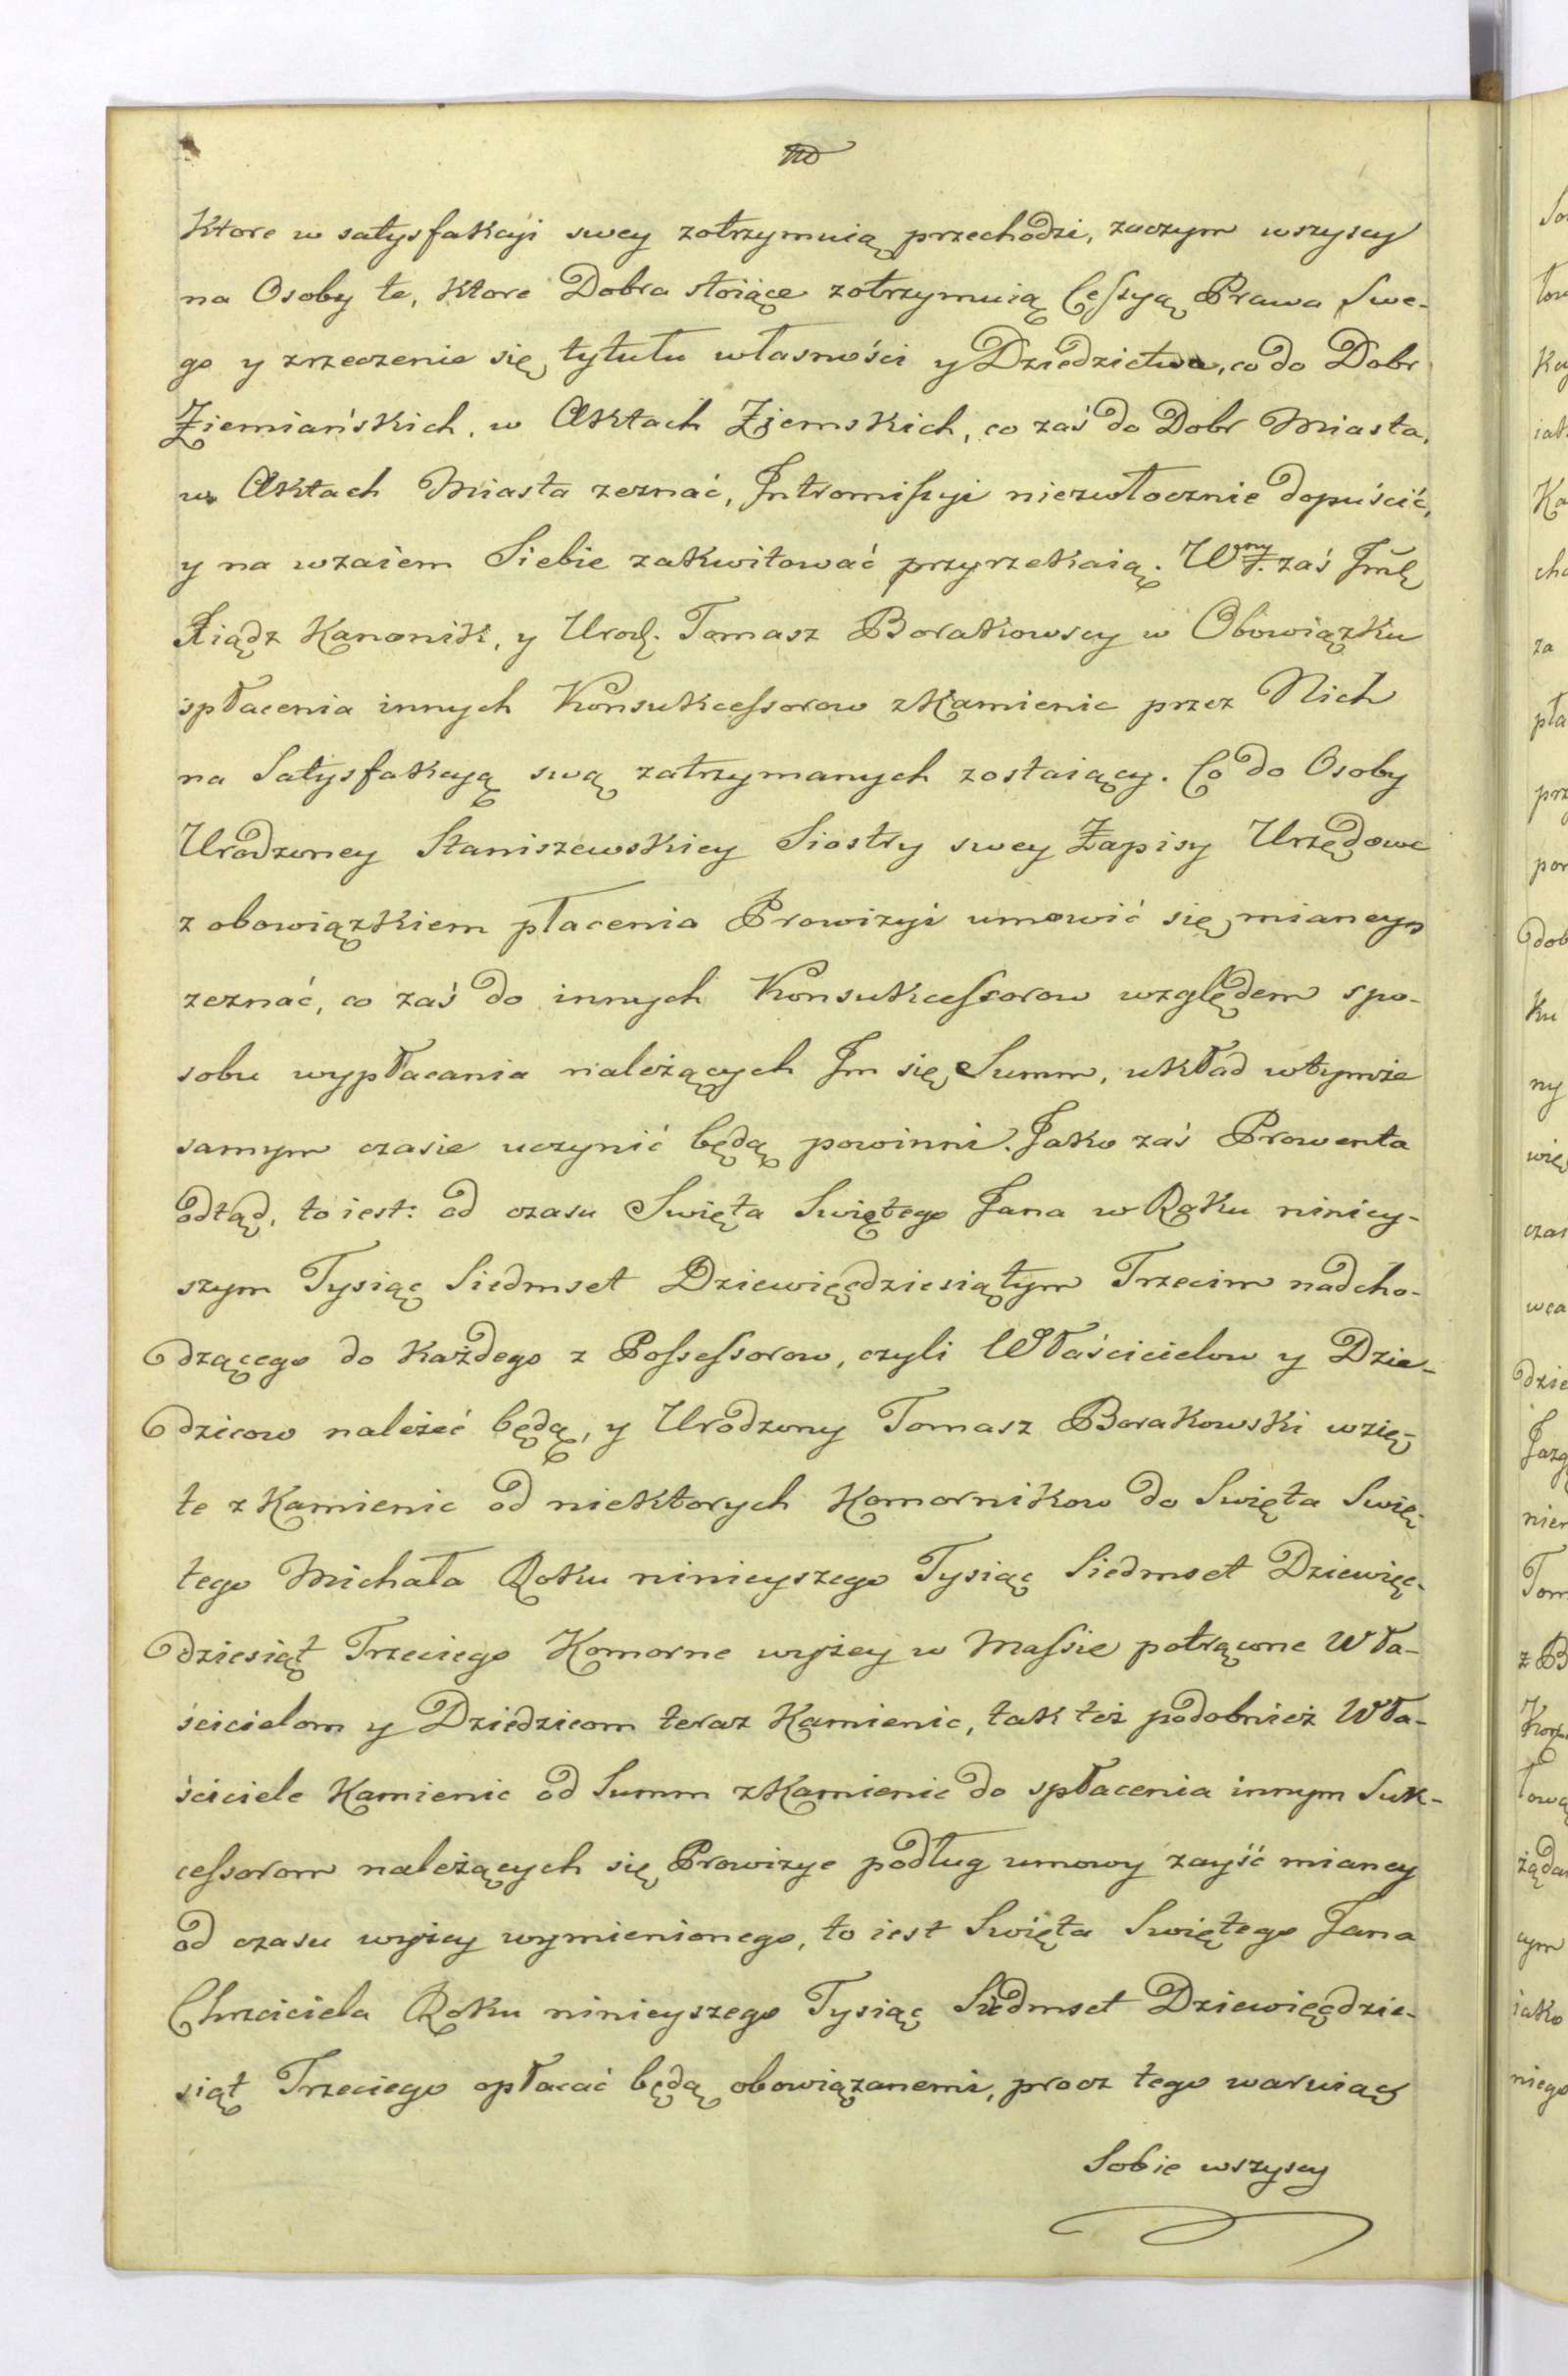 Ktore w satysfakcyi swey zatrzymuią przechodzi, zaczym wszyscy
na Osoby te, ktore Dobra stoiące zatrzymuią Cessyą Prawa Swe-
go y zrzeczenie się tytułu własności y Dziedzictwa, co do Dobr
Ziemiańskich, w Aktach Ziemskich, co zaś do Dobr Miasta,
w Aktach Miasta zeznać, Intromissyi niezwłocznie dopuścić,
y na wzaiem Siebie zakwitować przyrzekaią. zaś
Xiądz Kanonik, y Urodz. Tomasz Borakowscy w Obowiązku
spłacenia innych Konsukcessorow z Kamienic przez Nich
na Satysfakcyą swą zatrzymanych zostaiący. Co do Osoby
Urodzoney Staniszewskiey Siostry swey Zapisy Urzędowe
z obowiązkiem płacenia Prowizyi umowić się mianey
zeznać, co zaś do innych Konsukcessorow względem spo-
sobu wypłacania należących Im się Summ, układ w tymże
samym czasie uczynić będą powinni. Jako zaś Prowenta
odtąd, to iest: od czasu Swięta Swiętego Jana w Roku niniey-
szym Tysiąc Siedmset Dziewięćdziesiątym Trzecim nadcho-
dzącego do każdego z Possessorow, czyli Właścicielow y Dzie-
dzicow należeć będą, y Urodzony Tomasz Borakowski wzię-
te z Kamienic od niektorych Komornikow do Swięta Swię-
tego Michała Roku ninieyszego Tysiąc Siedmset Dziewięć-
dziesiąt Trzeciego Komorne wyżey w Massie potrącone Wła-
ścicielom y Dziedzicom teraz Kamienic, tak też podobnież Wła-
ściciele Kamienic od Summ z Kamienic do spłacenia innym Suk-
cessorom należących się Prowizye podług umowy zayść mianey
od czasu wyżey wymienionego, to iest Swięta Swiętego Jana
Chrzciciela Roku ninieyszego Tysiąc Siedmset Dziewięćdzie-
siąt Trzeciego opłacać będą obowiązanemi, procz tego waruiąc
Sobie wszyscy